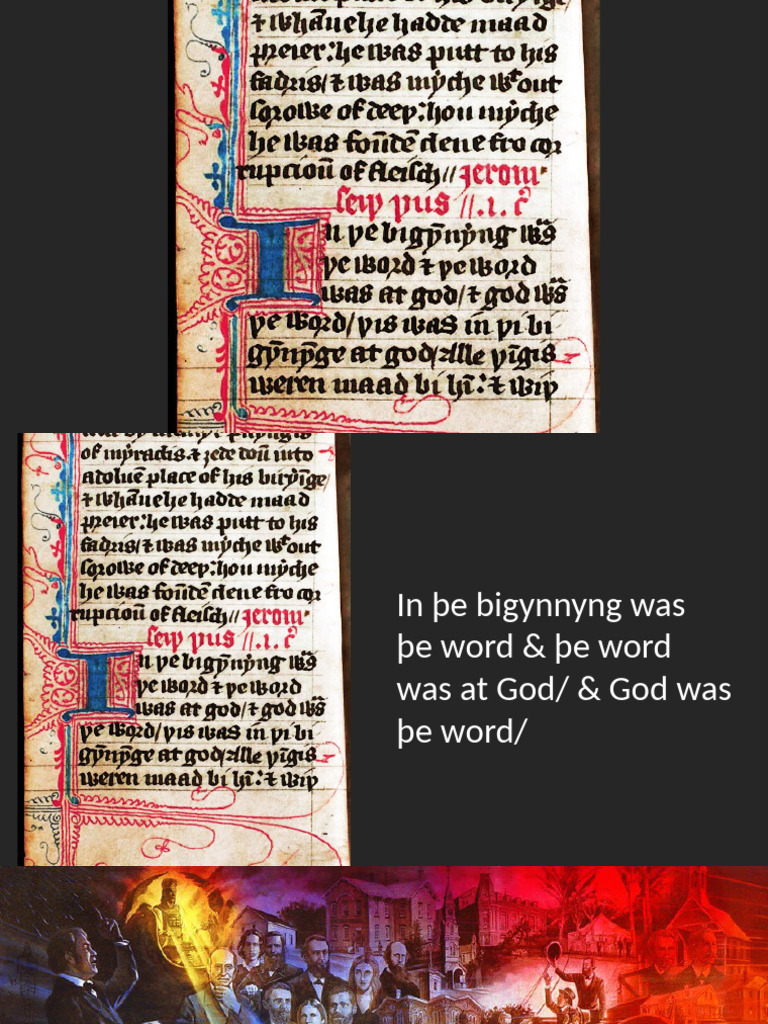 ⁊ whāne he hadde maad
preier: he was putt to his
fadris/ ⁊ was myche wᵗout
sorowe of deeþ: hou myche
he was foūdē clene fro cor
rupcioū of fleisch// Jerom
seiþ þus //.1. c̄
In þe bigȳnyng wᵃs
þe word ⁊ þe word
was at god/ ⁊ god wᵃs
þe word/ þis was in þi bi
gȳnyge at god/ Alle þīgis
weren maad bi hī: ⁊ wiþ
of myraclis ⁊ zede douū into
a doluē place of his biryīge
⁊ whāne he hadde maad
preier: he was putt to his
fadris/ ⁊ was myche wᵗout
sorowe of deeþ: hou myche
he was foūdē clene fro cor
rupcioū of fleisch// Jerom
seiþ þus //.1. c̄
In þe bigȳnyng wᵃs
þe word ⁊ þe word
was at god/ ⁊ god wᵃs
þe word/ þis was in þi bi
gȳnyge at god/ Alle þīgis
weren maad bi hī: ⁊ wiþ
In þe bigynnyng was
þe word & þe word
was at God/ & God was
þe word/